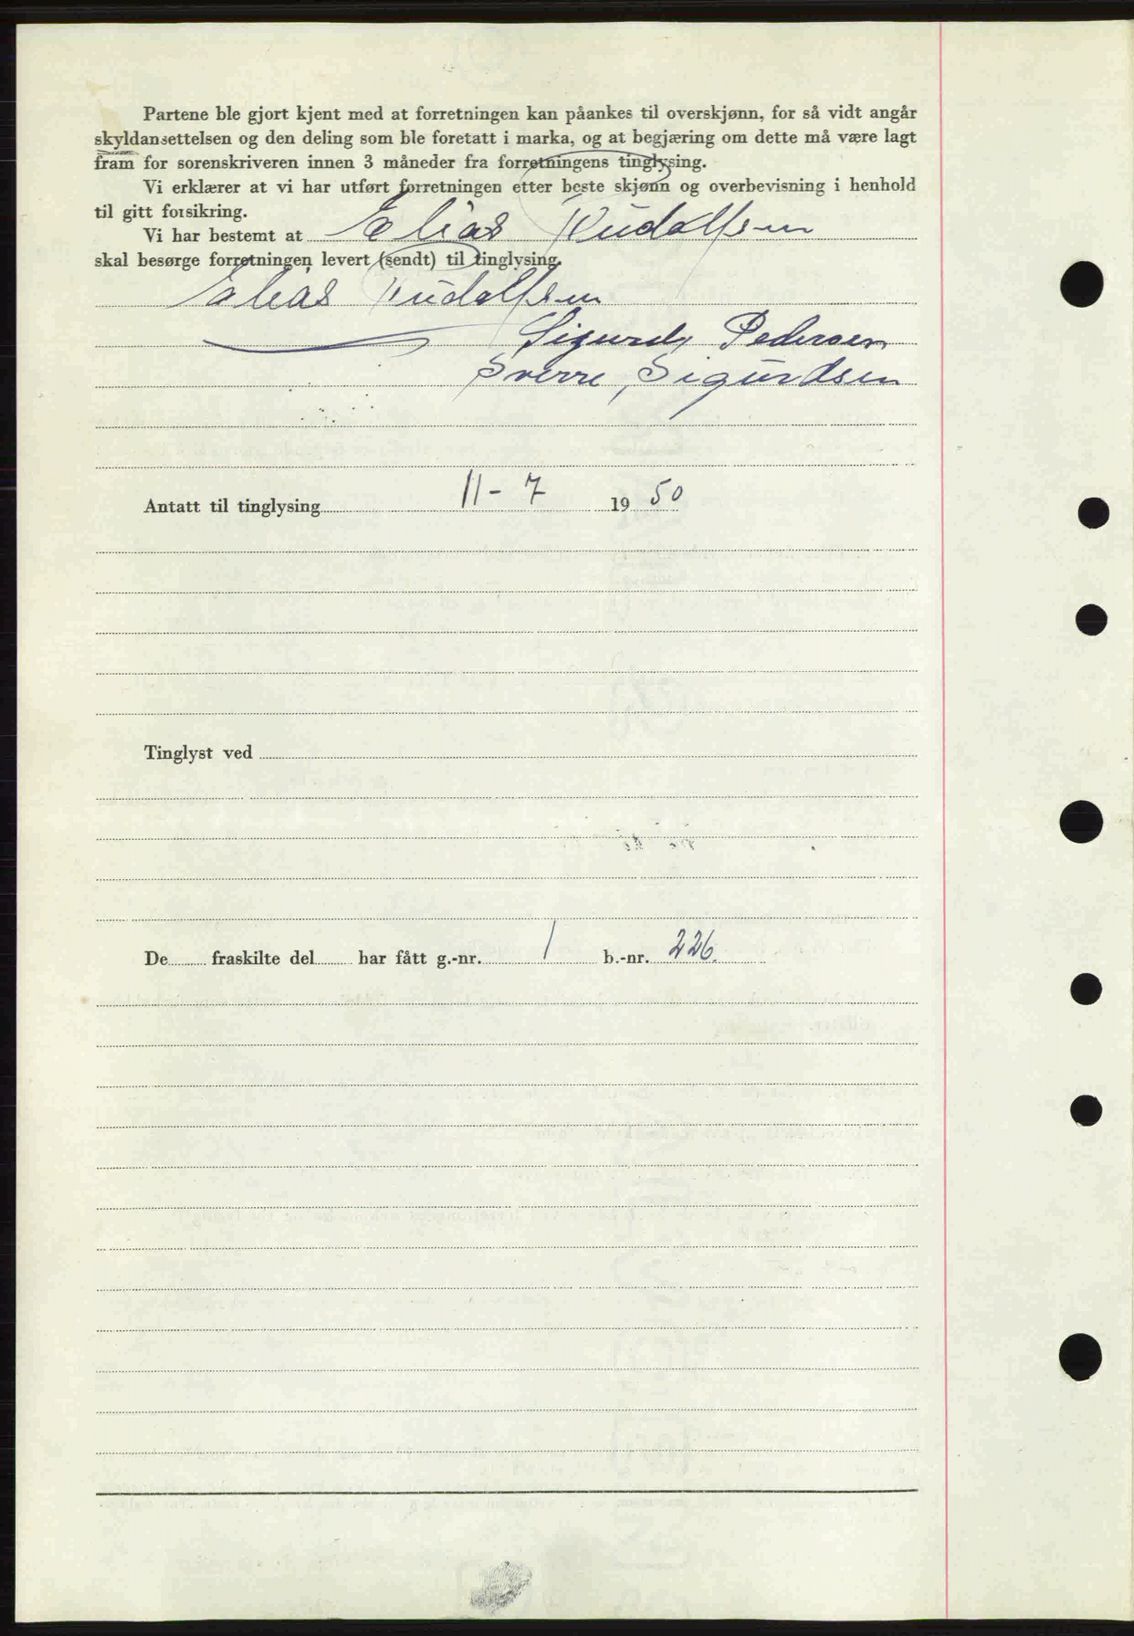 Partene ble gjort kjent med at forretningen kan påankes til overskjønn, for så vidt angår
skyldansettelsen og den deling som ble foretatt i marka, og at begjæring om dette må være lagt
fram for sorenskriveren innen 3 måneder fra forretningens tinglysing.
Vi erklærer at vi har utført forretningen etter beste skjønn og overbevisning i henhold
til gitt forsikring.
Vi har bestemt at Elias Rudolfsen
skal besørge forretningen levert (sendt) til tinglysing.
Elias Rudolfsen
Sigurd Pedersen
Sverre Sigurdsen
Antatt til tinglysing 11-7 1950
Tinglyst ved
De fraskilte del har fått g.-nr. 1 b.-nr. 226.